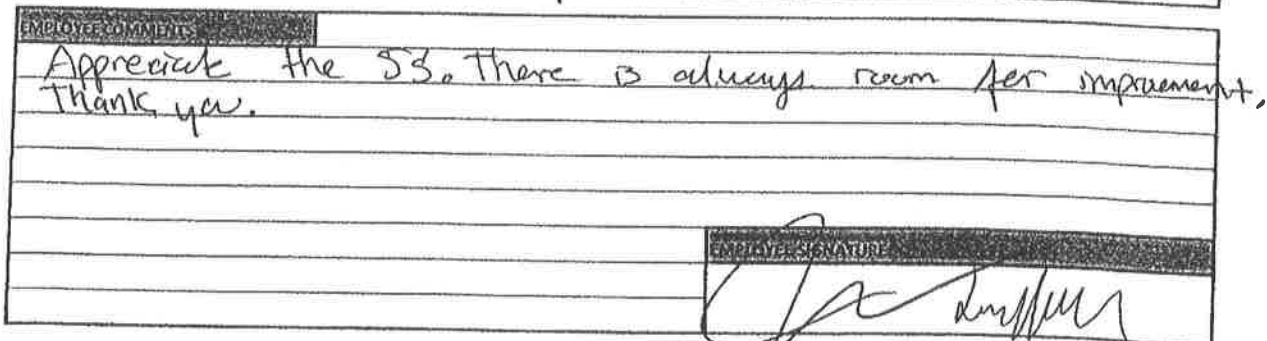 EMPLOYEE COMMENTS
Appreciate the 5S. There is always room for improvement,
Thank you.
EMPLOYEE SIGNATURE